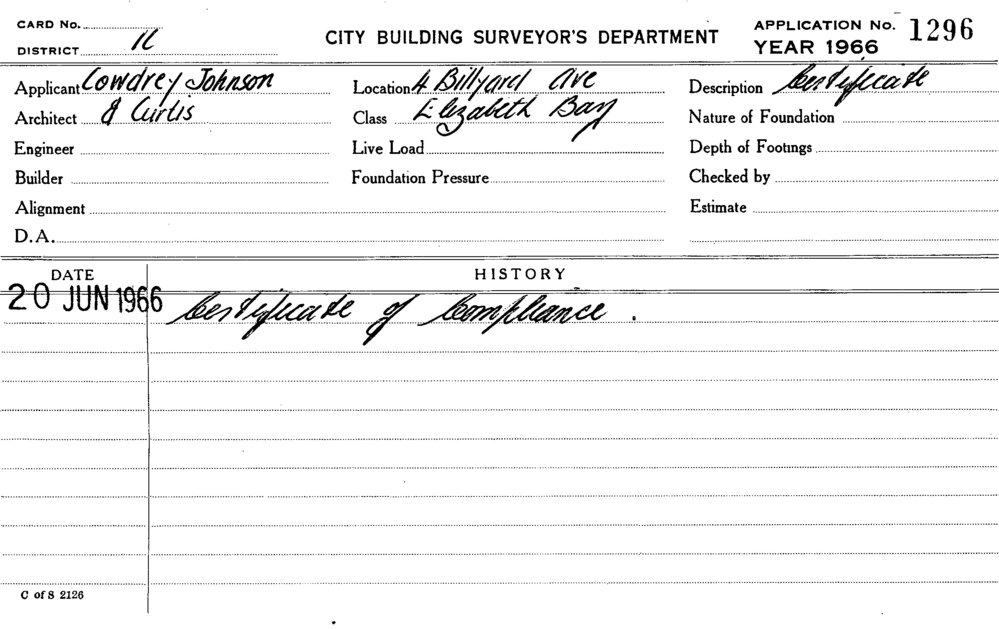 CARD No.
DISTRICT
CITY BUILDING SURVEYOR'S DEPARTMENT
APPLICATION No. 1296
YEAR 1966
Applicant Cowdrey Johnson
Location 4 Billyard Ave
Description Certificate
Architect & Curtis
Class Elizabeth Bay
Nature of Foundation
Engineer
Live Load
Depth of Footings
Builder
Foundation Pressure
Checked by
Alignment
Estimate
D.A.
DATE
HISTORY
20 JUN 1966 Certificate of Compliance.
C of S 2126